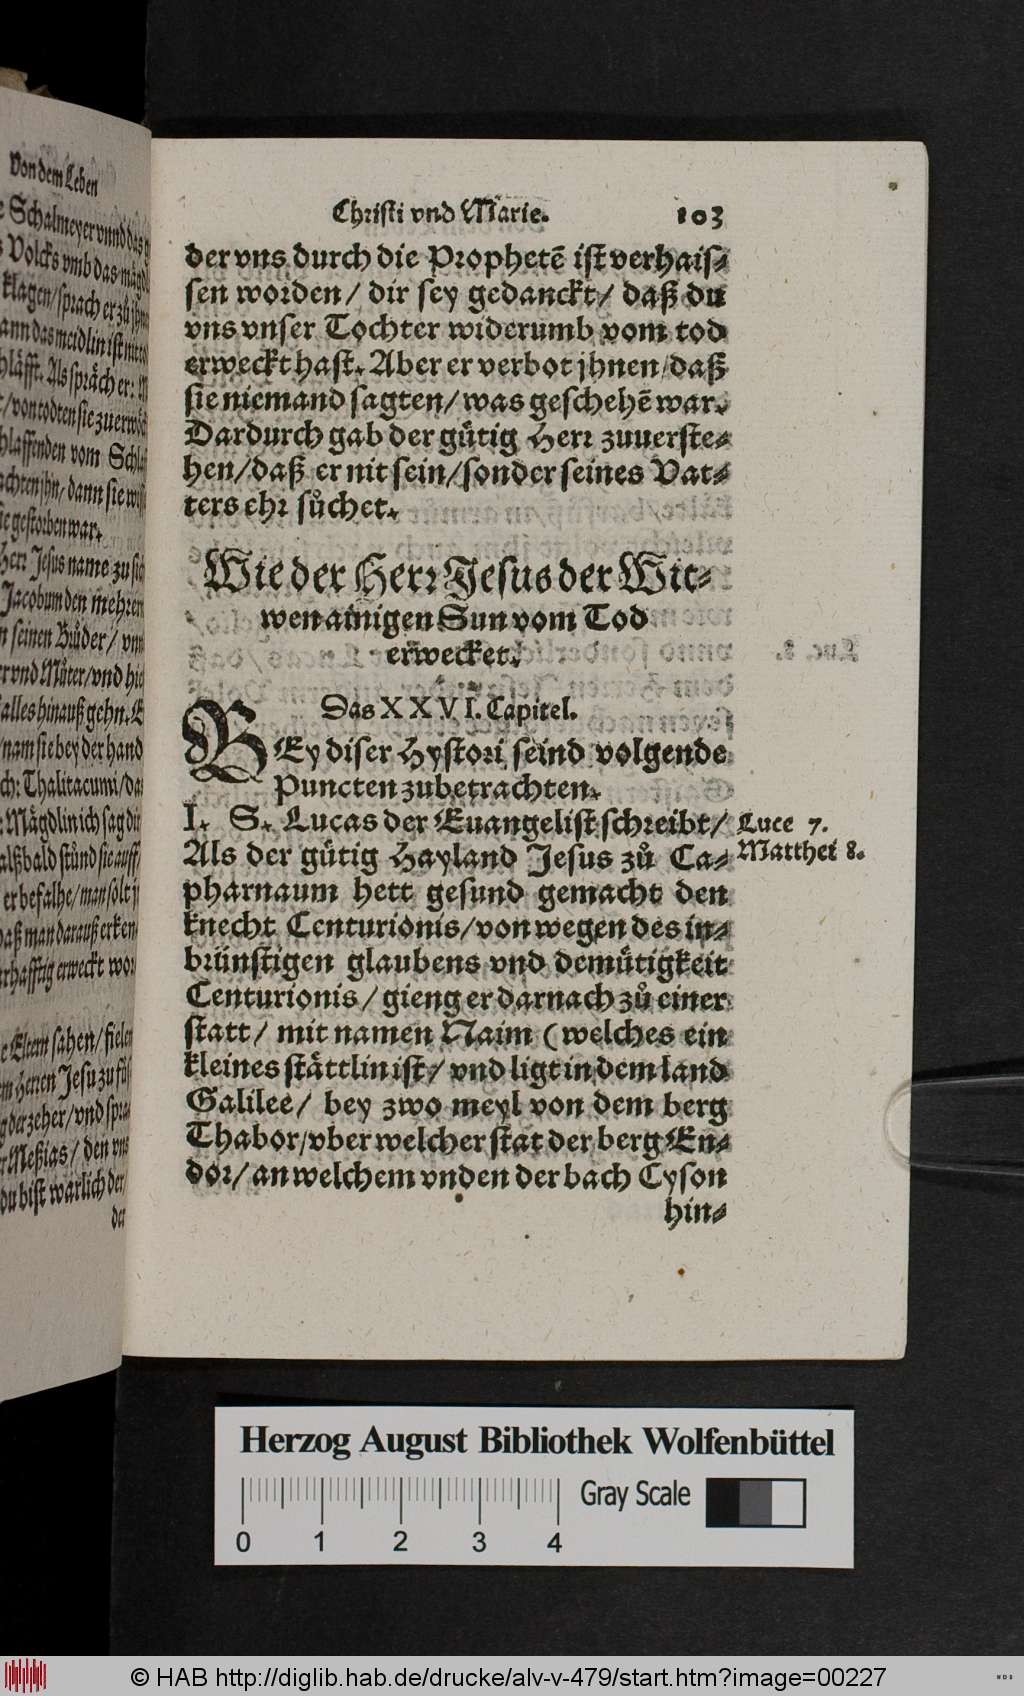 Von dem Leben
Schalmeyer vnnd das
Volcks vmb das mägd
klagen/ sprach er zů jhn
ann das meidlin ist nit tod
hläfft. Als spräch er:
/ von todten sie zu erwö
hlaffenden vom Schl
achten jhn/ dann sie wis
ie gestorben war.
Herr Jesus name zu sich
Jacobum den mehren
n seinen Brůder/ vnn
er vnd Můter/ vnd hie
alles hinauß gehn. E
nam sie bey der hand
ch: Thalitacumi/ das
: Mägdlin ich sag dir
alßbald stůnd sie auff/
er befalhe/ man solt j
daß man darauß erken
rhafftig erweckt wor
e Eltern sahen/ fielen
em Herren Jesu zu fůs
g der zeher/ vnd spra
r Meßias/ den vns
du bist warlich der/
der
Christi vnd Marie. 103
der vns durch die Prophetē ist verhais⸗
sen worden/ dir sey gedanckt/ daß du
vns vnser Tochter widerumb vom tod
erweckt hast. Aber er verbot jhnen/ daß
sie niemand sagten/ was geschehē war.
Dardurch gab der gůtig Herr zuuerste⸗
hen/ daß er nit sein/ sonder seines Vat⸗
ters ehr sůchet.
Wie der Herr Jesus der Wit⸗
wen ainigen Sun vom Tod
erwecket.
Das XXVI. Capitel.
BEy diser Hystori seind volgende
Puncten zubetrachten.
I. S. Lucas der Euangelist schreibt/
Luce 7.
Als der gůtig Hayland Jesus zů Ca⸗
Matthei 8.
pharnaum hett gesund gemacht den
knecht Centurionis/ von wegen des in⸗
brünstigen glaubens vnd demůtigkeit
Centurionis/ gieng er darnach zů einer
statt/ mit namen Naim (welches ein
kleines stättlin ist/ vnd ligt in dem land
Galilee/ bey zwo meyl von dem berg
Thabor/ vber welcher stat der berg En⸗
dor/ an welchem vnden der bach Cyson
hin⸗
Herzog August Bibliothek Wolfenbüttel
0 1 2 3 4
Gray Scale
© HAB http://diglib.hab.de/drucke/alv-v-479/start.htm?image=00227